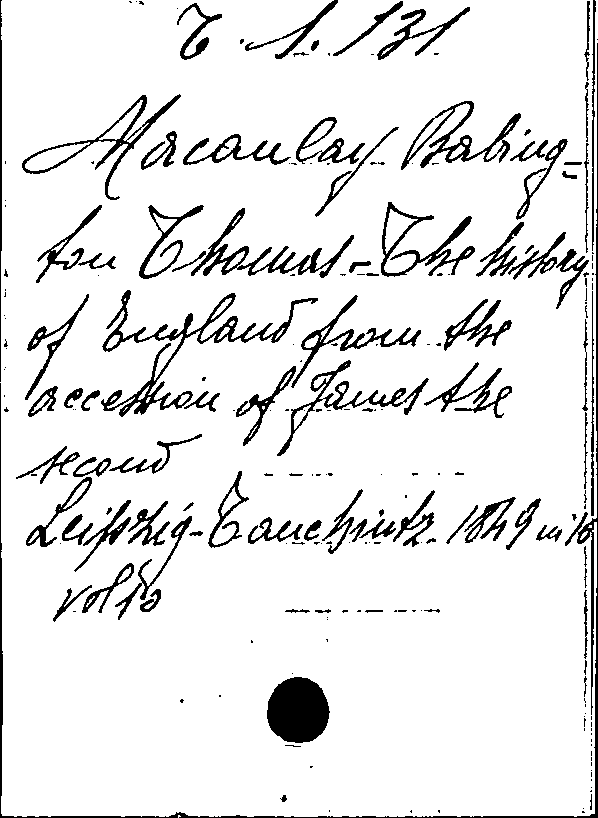 T. 1. 131
Macaulay Babing=
ton Thomas - The history
of England from the
accession of James the
second
Leipzig - Tauchnitz 1849 in 16
vol 10